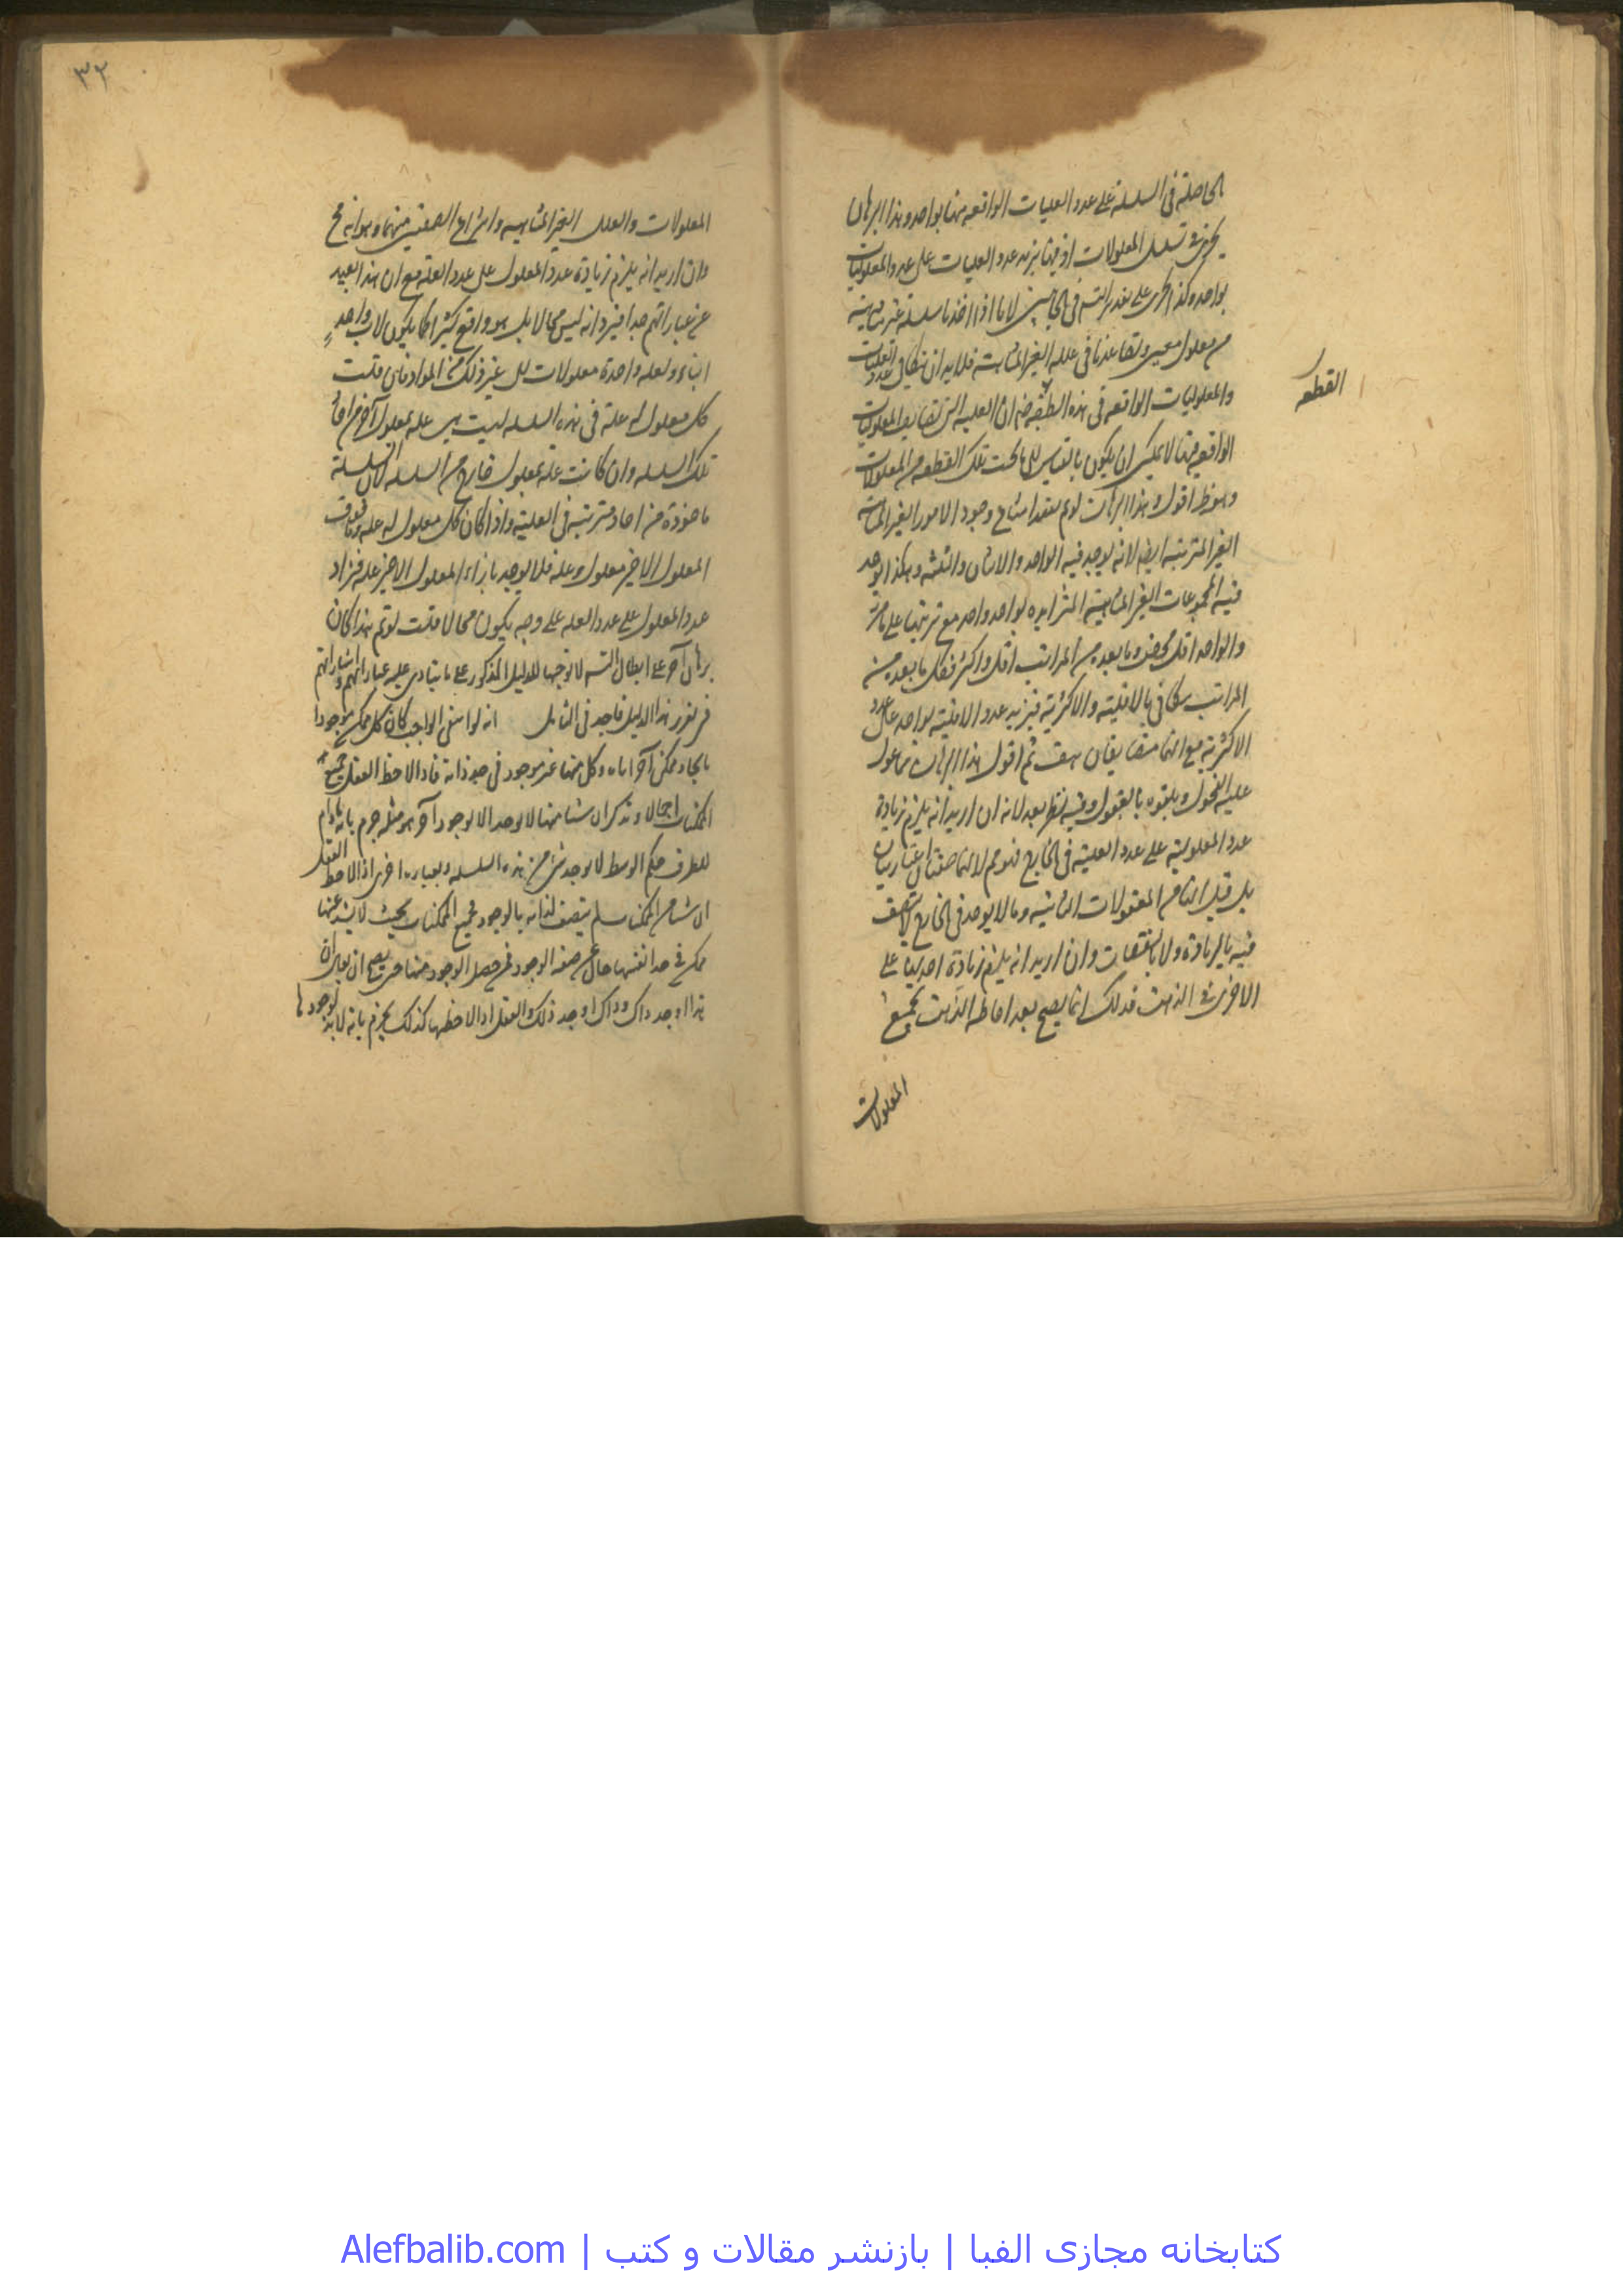 الحاصلة فى السلسلة على عدد العليات الواقعة فيها بواحد وهذا البرهان
يجرى فى تسلسل المعلولات اذ فيها يزيد عدد العليات على عدد المعلوليات
بواحد وكذا يجرى على تقدير التسلسل فى الجانبين لانا اذا اخذنا سلسلة غير متناهية
من معلول معين وتصاعدنا فى علله الغير المتناهية فلابد ان يتكافى عدد العليات
والمعلوليات الواقعة فى هذه القطعة ضرورة ان العلية التى تضايف المعلوليات
القطعه
الواقعة فيها لا يمكن ان يكون بالقياس الى ما تحت تلك القطعة من المعلولات
وهو ظ اقول وهذا البرهان لو تم يفيد امتناع وجود الامور الغير المتناهية
الغير المترتبة ايضا لانه يوجد فيه الواحد والاثنان والثلثة وهكذا يوجد
فيه المجموعات الغير المتناهية المتزايدة بواحد واحد مع ترتبها على ما مر
والواحد اقل محض وما بعده من المراتب اقل واكثر فكل ما بعده من
المراتب يتكافى بالاقلية والاكثرية فيزيد عدد الاقلية بواحد على عدد
الاكثرية مع انهما متضايفان هف ثم اقول هذا البرهان مما عول
عليه الفحول وتلقوه بالقبول وفيه نظر بعد لانه ان اريد انه يلزم زيادة
عدد المعلولية على عدد العلية فى الخارج فهو مم لانهما صفتان اعتباريتان
بل قيل انهما من المعقولات الثانية وما لا يوجد فى الخارج لا يتصف
فيه بالزيادة ولا بالنقصان وان اريد انه يلزم زيادة احديهما على
الاخرى فى الذهن فذلك انما يصح بعد احاطة الذهن بجميع
المعلولات
٣٢
المعلولات والعلل الغير المتناهية وانتزاع الصفتين منهما وهو انه مح
وان اريد انه يلزم زيادة عدد المعلول على عدد العلة مع ان هذا بعيد
عن عباراتهم جدا فيرد انه ليس محالا بل هو واقع كثيرا كما يكون لاب واحد
ابناء ولعلة واحدة معلولات الى غير ذلك من المواد فان قلت
كل معلول له علة فى هذه السلسلة ليست هى علة لمعلول آخر من احاد
تلك السلسلة وان كانت علة لمعلول خارج من السلسلة لان السلسلة
ماخوذة من احاد مترتبة فى العلية واذا كان كل معلول له علة وما فوق
المعلول الاخير معلول وعلة فلا يوجد بازاء المعلول الاخير علة فزاد
عدد المعلول على عدد العلة على وجه يكون محالا قلت لو تم هذا كان
برهانا آخر على ابطال التسلسل لا توجيها للدليل المذكور على ما ينادى عليه عباراتهم واشاراتهم
فى تقرير هذا الدليل فاجد فى التامل انه لو انتفى الواجب كان كل ممكن موجودا
بايجاد ممكن آخر اياه وكل منها غير موجود فى حد ذاته فاذا لاحظ العقل جميع
الممكنات اجمالا وتذكر ان شيئا منها لا يوجد الا لوجود آخر هو مثله جزم بانه ما دام
للطرف حكم الوسط لا يوجد شئ من هذه السلسلة وبعبارة اخرى اذا لاحظ العقل
ان شيئا من الممكنات لم يتصف لذاته بالوجود فجميع الممكنات بحيث لا يشذ عنها
ممكن فى حد انفسها خال عن صفة الوجود فمن حصل الوجود منها حتى يصح ان يقال ان
هذا اوجد ذاك وذاك اوجد ذلك والعقل اذا لاحظها كذلك يجزم بانه لابد لوجودها
کتابخانه مجازی الفبا | بازنشر مقالات و کتب | Alefbalib.com